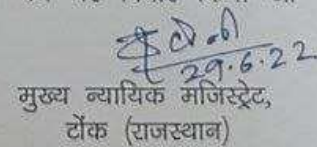 29.6.22
मुख्य न्यायिक मजिस्ट्रेट,
टोंक (राजस्थान)